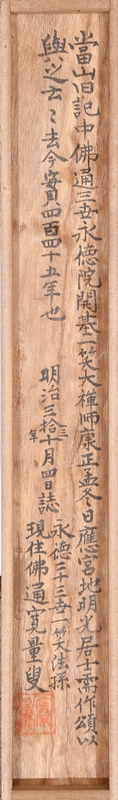 當山旧記中佛通三世永德院開基一笑大禅師康正孟冬日應宮地明光居士需作頌以
與之云〻去今實四百四十五年也
明治三拾三年十月四日誌
永德二十三世一笑大法孫
現住佛通寛量叟